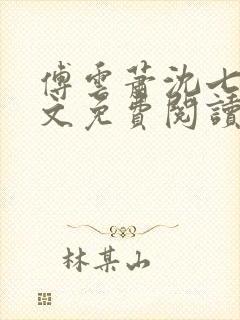 傅雲蕭沈七
文免費閱讀
林某山